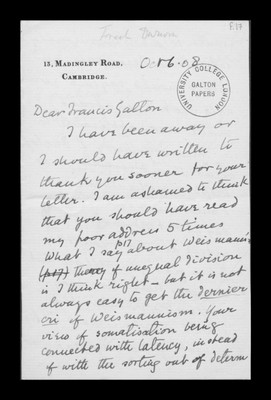 F. 17
Frank Darwin
13, MADINGLEY ROAD,
CAMBRIDGE.
O. 16. 08
UNIVERSITY COLLEGE LONDON
GALTON
PAPERS
Dear Francis Galton
I have been away or
I should have written to
thank you sooner for your
letter. I am ashamed to think
that you should have read
my poor address 5 times
What I say p17 about Weismann's
(p17) theory of unequal division
is I think right – but it is not
always easy to get the dernier
cri of Weismannism. Your
view of somatisation being
connected with latency, instead
of with the sorting out of determ